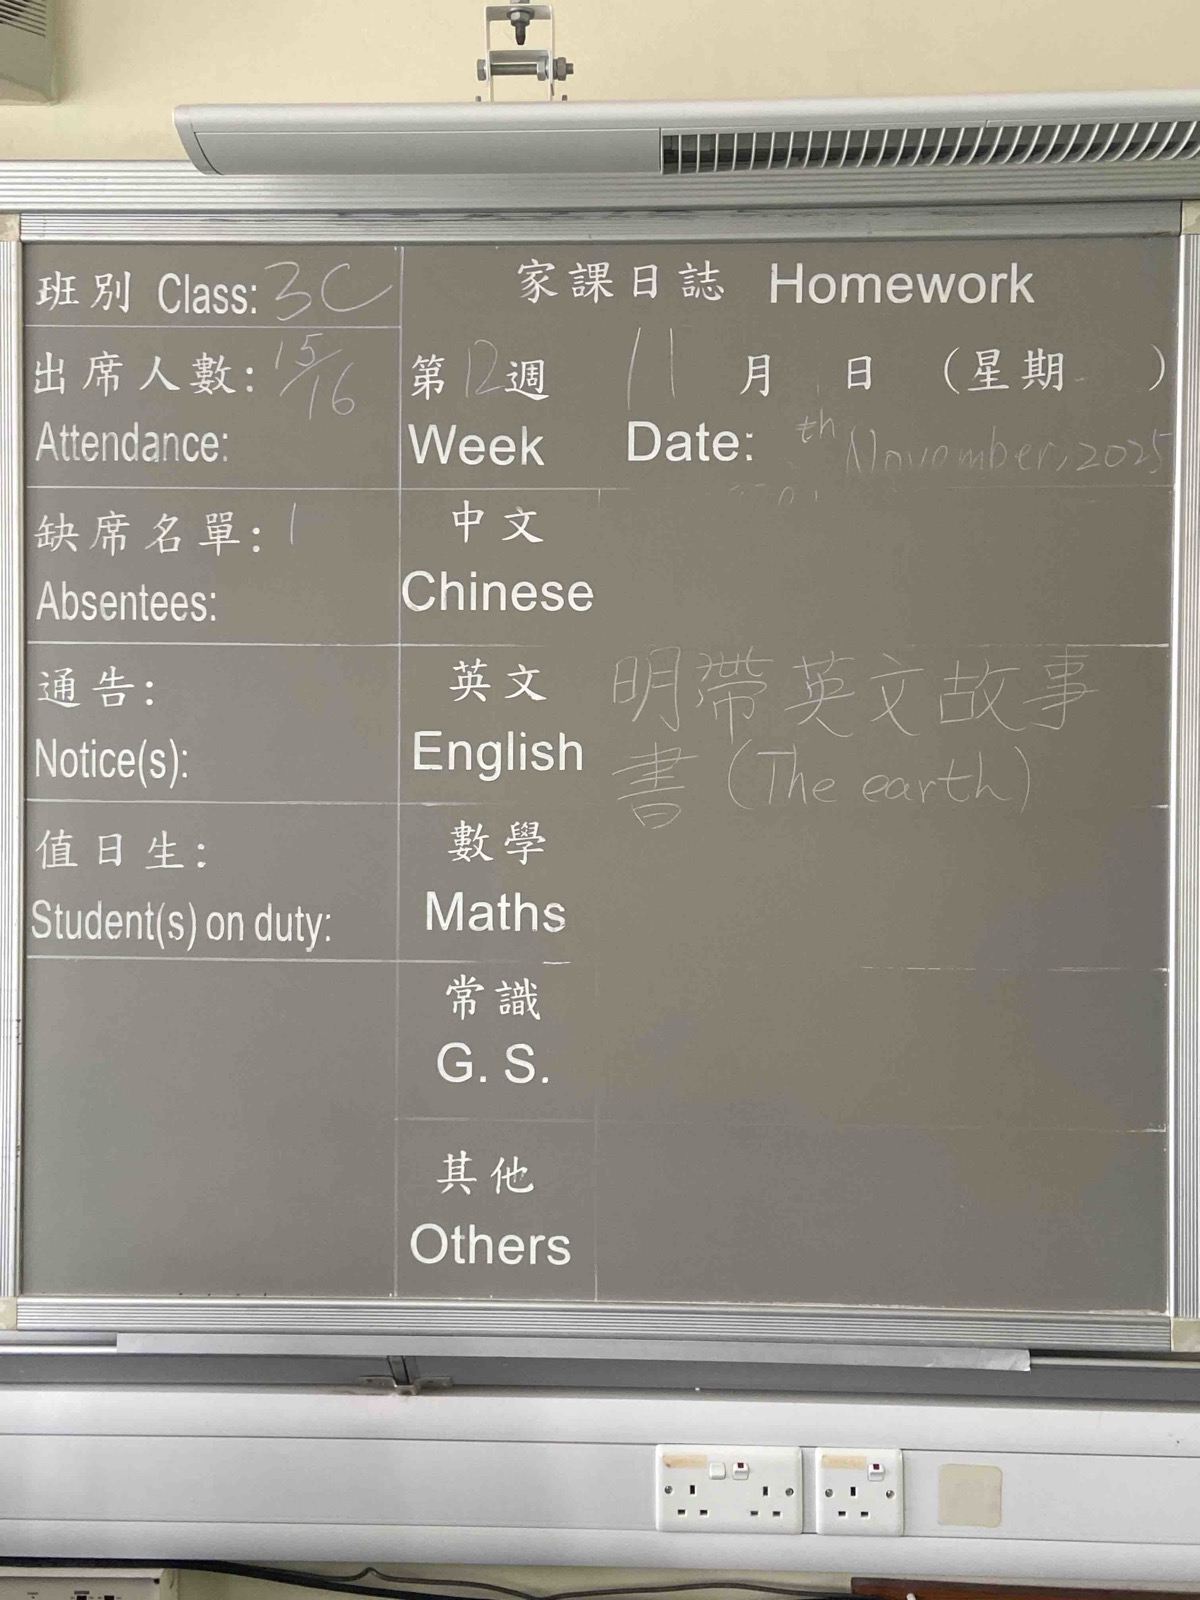 班別 Class: 3C
出席人數: 15/16
Attendance:
缺席名單: 1
Absentees:
通告:
Notice(s):
值日生:
Student(s) on duty:
家課日誌 Homework
第12週 11 月 日 (星期 )
Week Date: th November, 2025
中文
Chinese
英文 明帶英文故事
English 書 (The earth)
數學
Maths
常識
G. S.
其他
Others